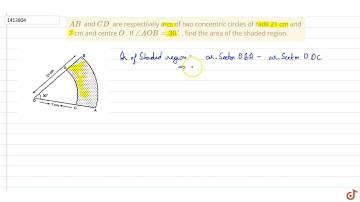 1413804
AB and CD are respectively arcs of two concentric circles of radii 21 cm and
7 cm and centre O. If ∠AOB = 30°, find the area of the shaded region.
Ar. of Shaded region = ar. Sector OBA - ar. Sector ODC
⇒
B
21 cm
D
30°
O
7 cm
C
A
doubtnut